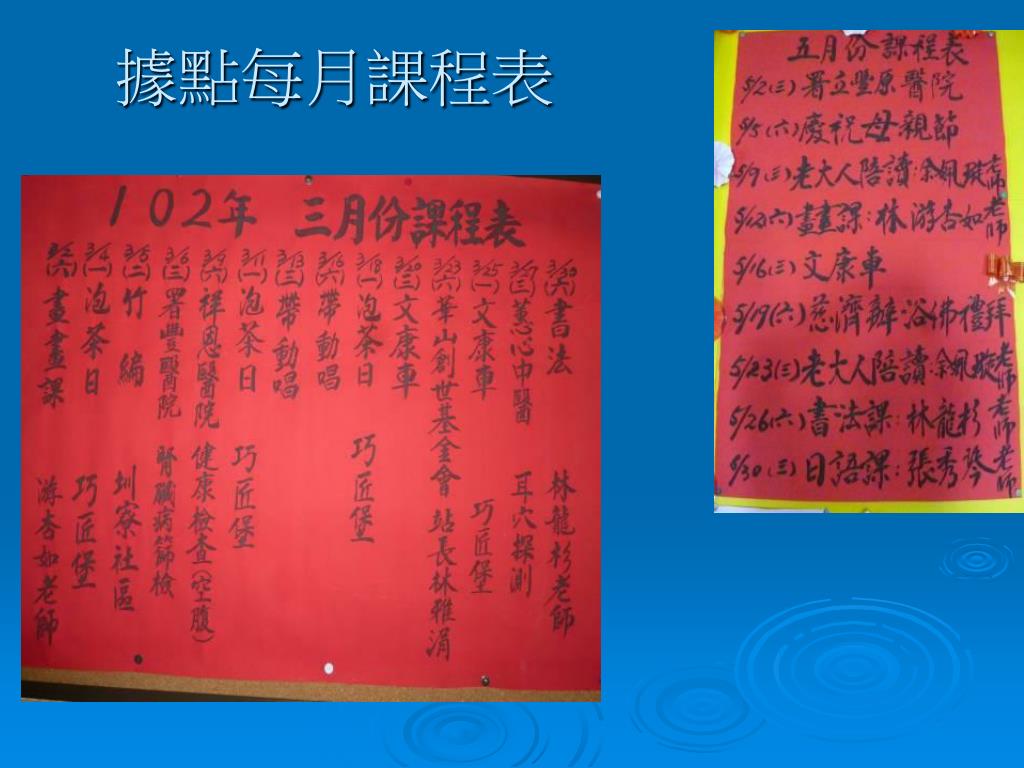 據點每月課程表
102年 三月份課程表
3/2(六)畫畫課 游杏如老師
3/4(一)泡茶日 巧匠堡
3/5(二)竹編 圳寮社區
3/6(三)署豐醫院 腎臟病篩檢
3/9(六)祥恩醫院 健康檢查(空腹)
3/11(一)泡茶日 巧匠堡
3/13(三)帶動唱
3/16(六)帶動唱
3/18(一)泡茶日 巧匠堡
3/20(三)文康車
3/23(六)華山創世基金會 站長林雅涓
3/25(一)文康車 巧匠堡
3/27(三)蕙心中醫 耳穴探測
3/30(六)書法 林龍杉老師
五月份課程表
5/2(三)署立豐原醫院
5/5(六)慶祝母親節
5/9(三)老大人陪讀:余佩璇老師
5/12(六)畫畫課:林游杏如老師
5/16(三)文康車
5/19(六)慈濟辦浴佛禮拜
5/23(三)老大人陪讀:余佩璇老師
5/26(六)書法課:林龍杉老師
5/30(三)日語課:張秀琴老師